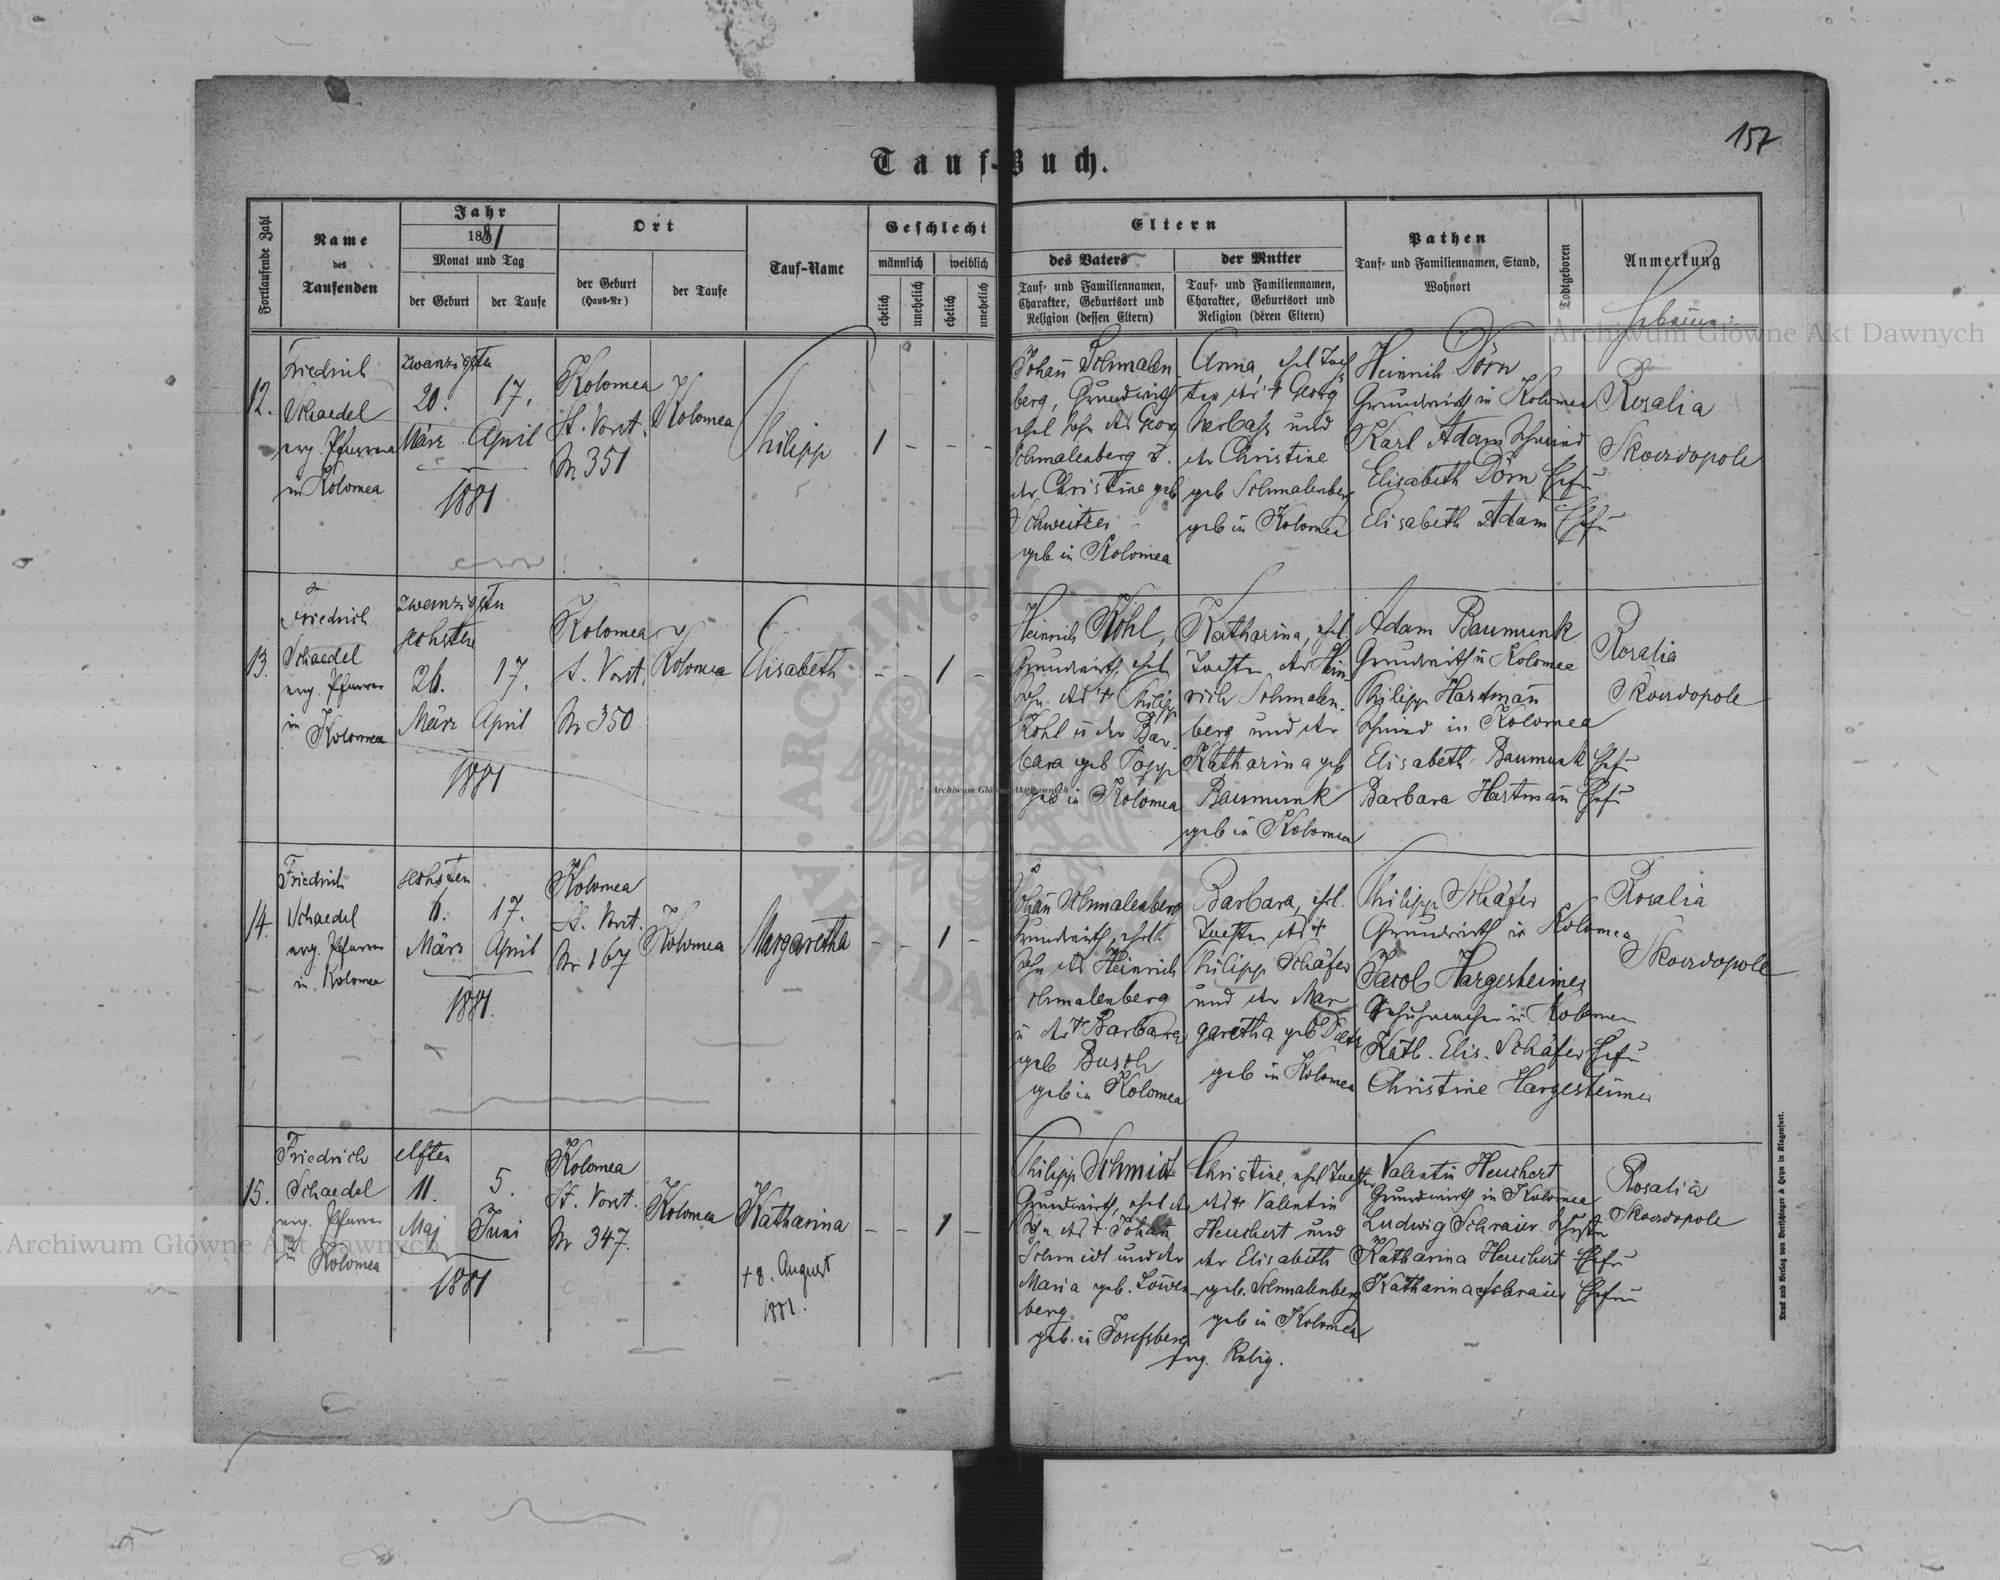 157
Tauf-Buch.
Fortlaufende Zahl
Name
des
Taufenden
Jahr
1881
Monat und Tag
der Geburt
der Taufe
Ort
der Geburt
(Haus-Nr)
der Taufe
Tauf-Name
Geschlecht
männlich
weiblich
ehelich
unehelich
ehelich
unehelich
Eltern
des Vaters
Tauf- und Familiennamen,
Charakter, Geburtsort und
Religion (dessen Eltern)
der Mutter
Tauf- und Familiennamen,
Charakter, Geburtsort und
Religion (deren Eltern)
Pathen
Tauf- und Familiennamen, Stand,
Wohnort
Todtgeboren
Anmerkung
12.
Friedrich
Schaedel
evg. Pfarrer
in Kolomea
zwanzigsten
20.
März
17.
April
1881
Kolomea
St. Vorst.
Nr 351
Kolomea
Philipp
1 - - -
Johan̄ Schmalen-
berg, Grundwirth
ehel Sohn des Georg
Schmalenberg u.
der Christine geb
Schweitzer
geb in Kolomea
Anna, ehel Toch
ter des † Georg
und
der Christine
geb Schmalenberg
geb in Kolomea
Heinrich Dörn
Grundwirth in Kolomea
Karl Adam Schmied
Elisabeth Dörn Ehefr
Elisabeth Adam Ehefr
Rosalia
Skowdopole
13.
Friedrich
Schaedel
evg. Pfarrer
in
Kolomea
zwanzigsten
sechsten
26.
März
17.
April
1881
Kolomea
S. Vorst.
Nr 350
Kolomea
Elisabeth
- - 1 -
Heinrich Köhl,
Grundwirth, ehel
Sohn des † Philipp
Köhl u der Bar-
bara geb Popp
geb in Kolomea
Katharina, ehel.
Tochter des Hein
rich Schmalen-
berg und der
Katharina geb
Baumunk
geb in Kolomea
Adam Baumunk
Grundwirth in Kolomea
Philipp Hartman̄
Schmied in Kolomea
Elisabeth Baumunk Ehefr
Barbara Hartman̄ Ehefr
Rosalia
Skowdopole
14.
Friedrich
Schaedel
evg. Pfarrer
in Kolomea
sechsten
6.
März
17.
April
1881.
Kolomea
St. Vorst.
Nr 167
Kolomea
Margaretha
- - 1 -
Johan̄ Schmalenberg
Grundwirth, ehel.
Sohn des Heinrich
Schmalenberg
u der † Barbara
geb Busch
geb in Kolomea
Barbara, ehel.
Tochter des †
Philipp Schäfer
und der Mar
garetha geb
geb in Kolomea
Philipp Schäfer
Grundwirth in Kolomea
Jacob Hargesheimer
in Kolomea
Kath. Elis. Schäfer Ehefr
Christine Hargesheimer
Rosalia
Skowdopole
15.
Friedrich
Schaedel
evg. Pfarrer
in
Kolomea
elften
11.
Maj
5.
Juni
1881
Kolomea
St. Vorst.
Nr 347.
Kolomea
Katharina
† 8. August
1881.
- - 1 -
Philipp Schmidt
Grundwirth, ehel
Sohn des † Johan̄
Schmidt und der
Maria geb. Löwen-
berg
geb. in Josefsberg
Christine, ehel Tochter
des † Valentin
Heuchert und
der Elisabeth
geb. Schmalenberg
geb in Kolomea
evg. Relig.
Valentin Heuchert
Grundwirth in Kolomea
Ludwig Schraier
Katharina Heuchert Ehefr
Katharina Schraier Ehefr
Rosalia
Skowdopole
Druck und Verlag von Bertschinger & Heyn in Klagenfurt.
Archiwum Główne Akt Dawnych
Archiwum Główne Akt Dawnych
Archiwum Główne Akt Dawnych